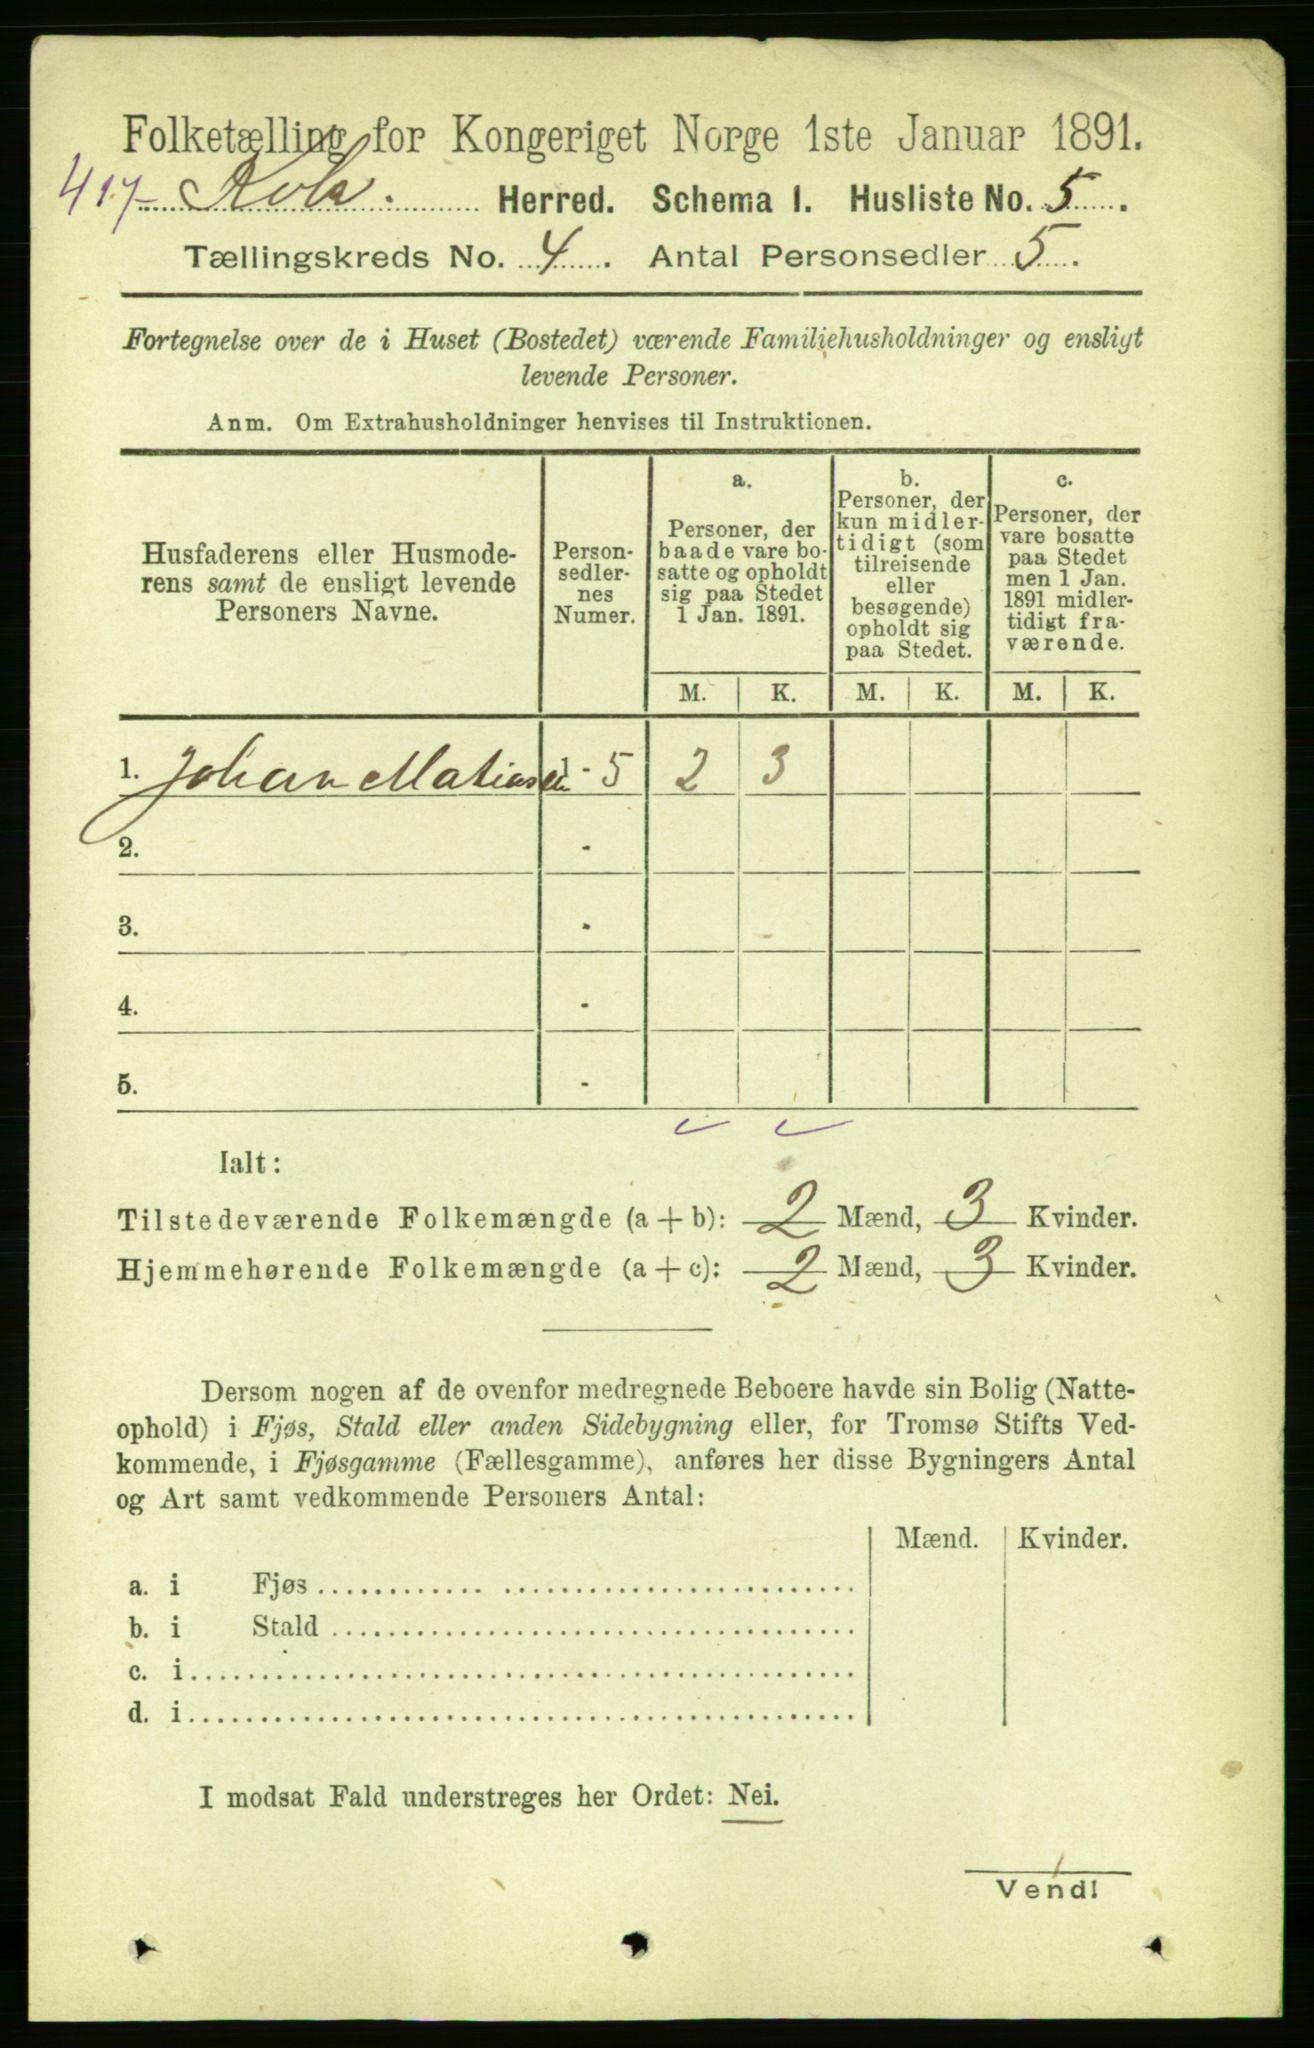 Folketælling for Kongeriget Norge 1ste Januar 1891.
417 Kolo. Herred. Schema 1. Husliste No. 5.
Tællingskreds No. 4. Antal Personsedler 5.
Fortegnelse over de i Huset (Bostedet) værende Familiehusholdninger og ensligt
levende Personer.
Anm. Om Extrahusholdninger henvises til Instruktionen.
Husfaderens eller Husmode-
rens samt de ensligt levende
Personers Navne.
Person-
sedler-
nes
Numer.
a.
Personer, der
baade vare bo-
satte og opholdt
sig paa Stedet
1 Jan. 1891.
b.
Personer, der
kun midler-
tidigt (som
tilreisende
eller
besøgende)
opholdt sig
paa Stedet.
c.
Personer, der
vare bosatte
paa Stedet
men 1 Jan.
1891 midler-
tidigt fra-
værende.
M. K. M. K. M. K.
1. Johan Matiasen 1 - 5 2 3
2. -
3. -
4. -
5. -
Ialt:
Tilstedeværende Folkemængde (a + b): 2 Mænd, 3 Kvinder.
Hjemmehørende Folkemængde (a + c): 2 Mænd, 3 Kvinder.
Dersom nogen af de ovenfor medregnede Beboere havde sin Bolig (Natte-
ophold) i Fjøs, Stald eller anden Sidebygning eller, for Tromsø Stifts Ved-
kommende, i Fjøsgamme (Fællesgamme), anføres her disse Bygningers Antal
og Art samt vedkommende Personers Antal:
Mænd. Kvinder.
a. i Fjøs
b. i Stald
c. i
d. i
I modsat Fald understreges her Ordet: Nei.
Vend!